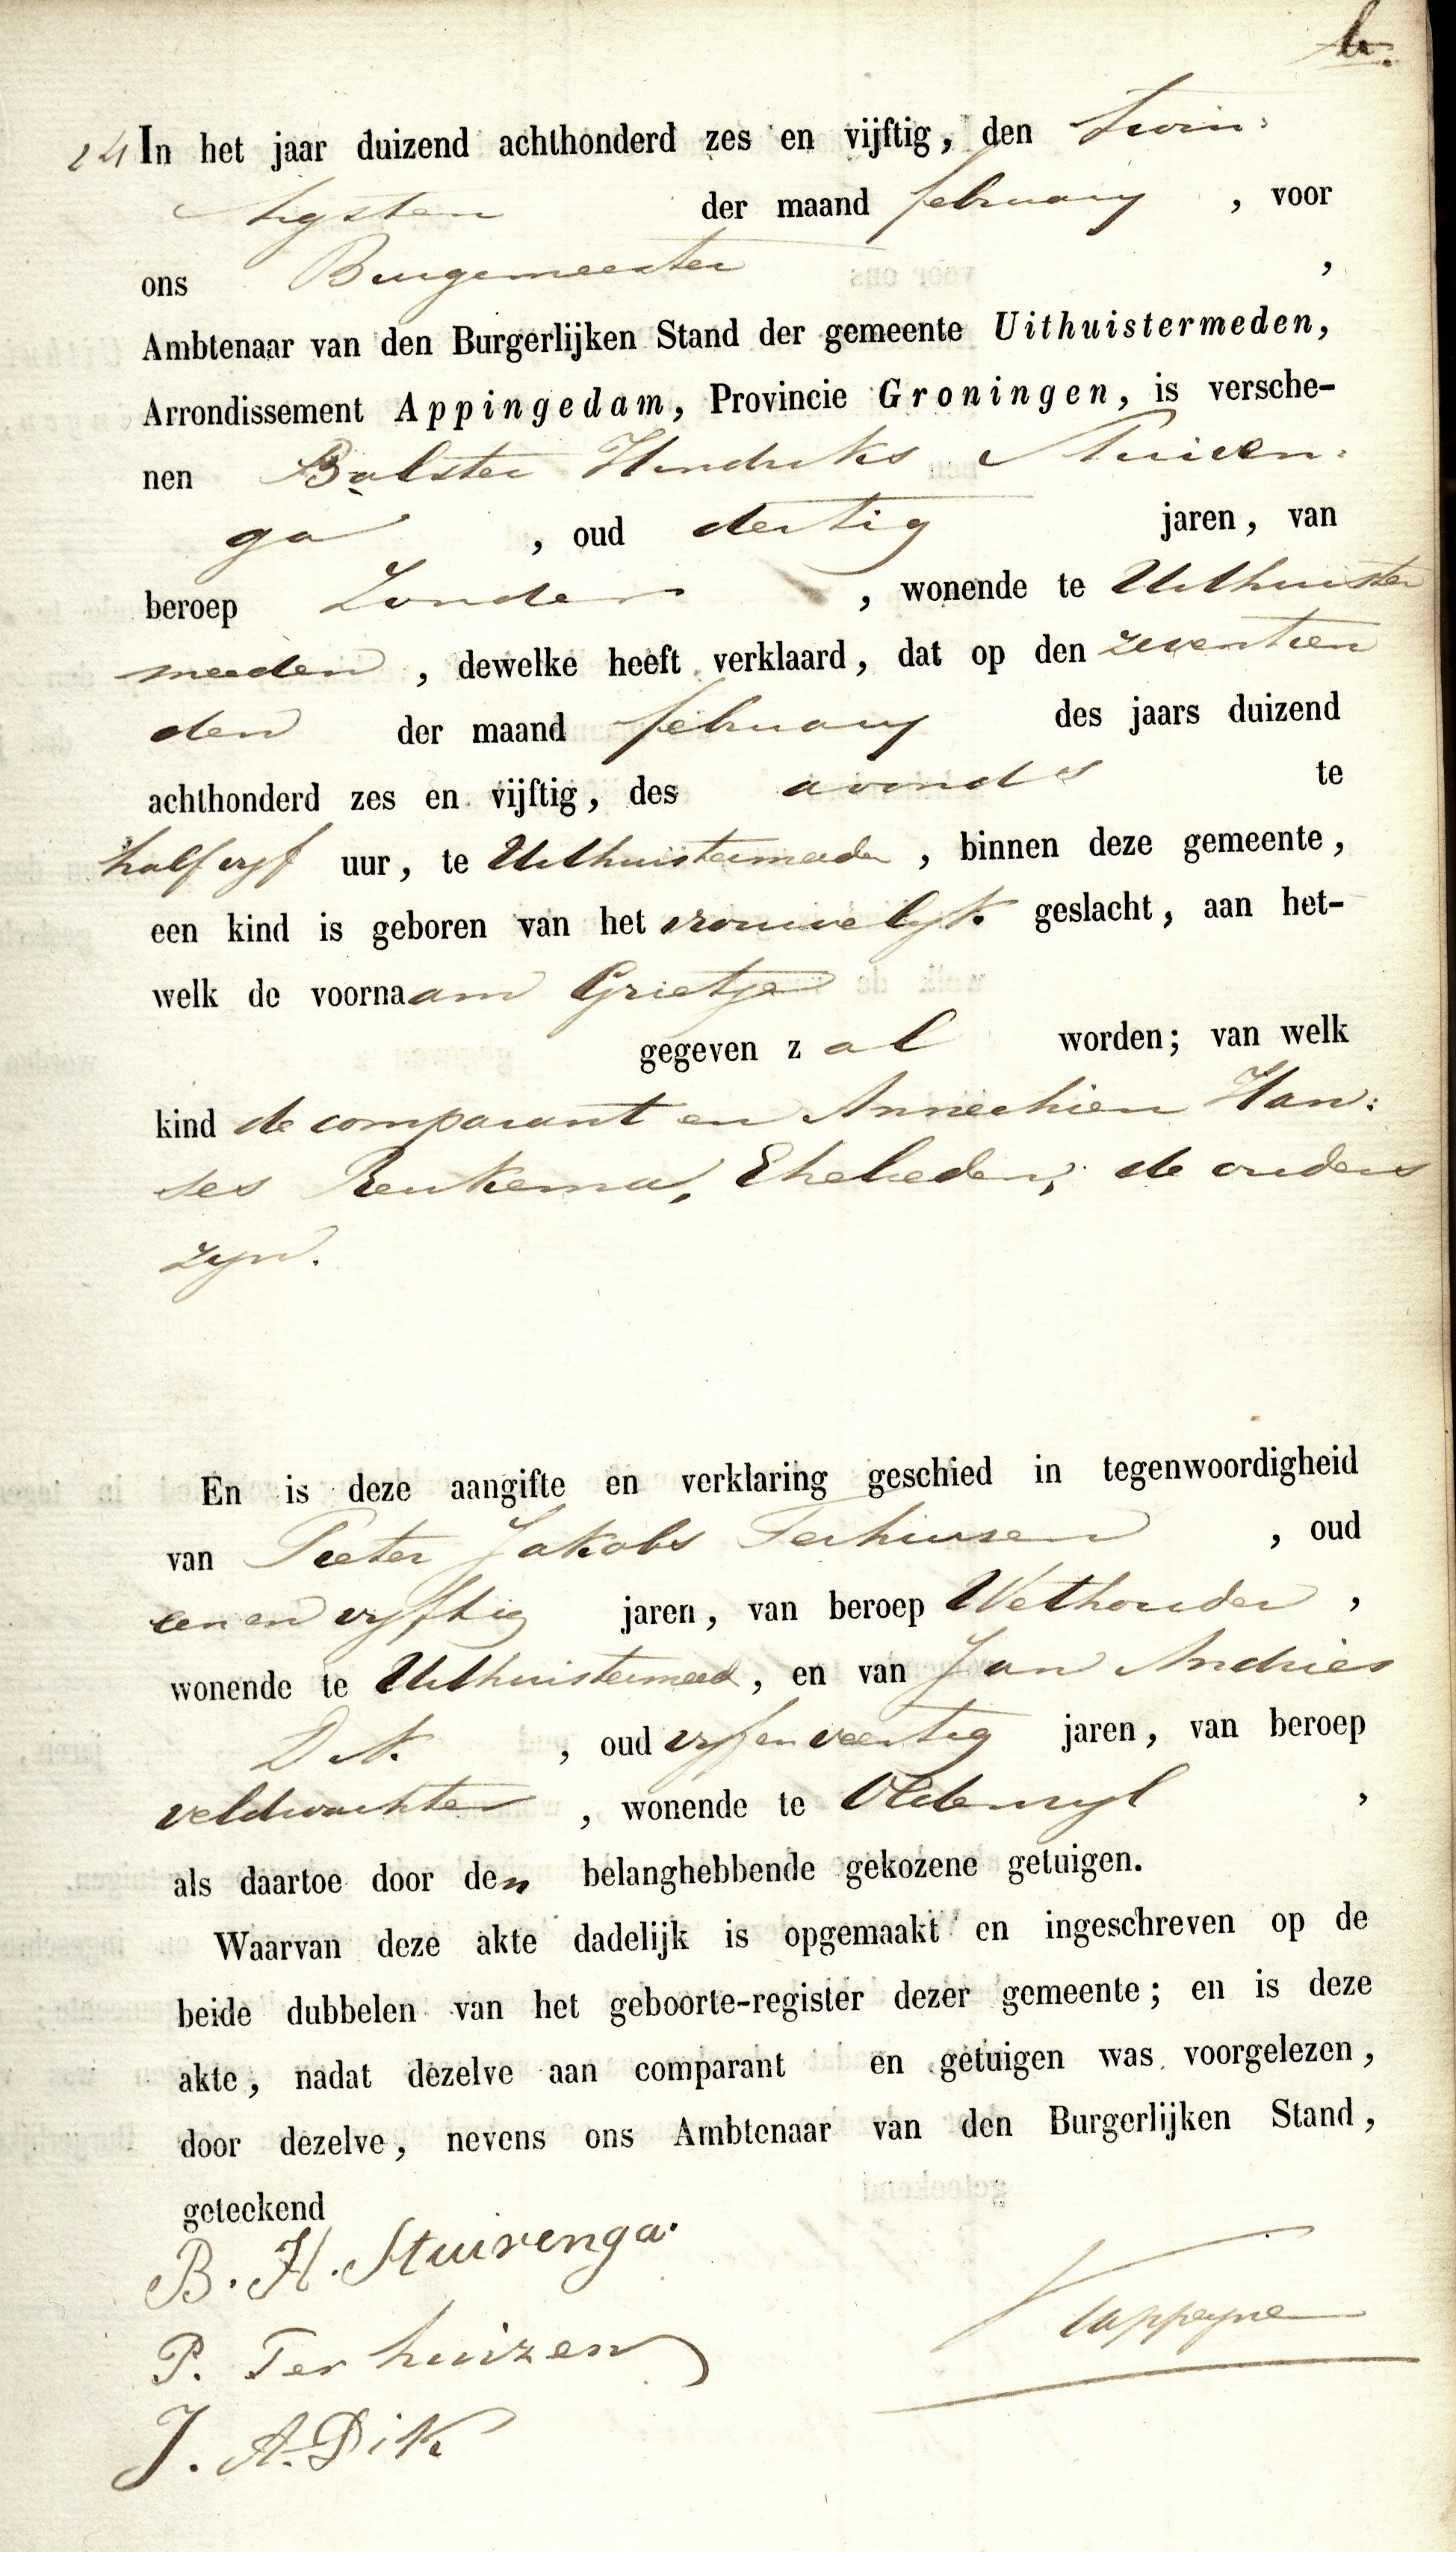 b.
24 In het jaar duizend achthonderd zes en vijftig, den twin:
tigsten der maand february , voor
ons Burgemeester ,
Ambtenaar van den Burgerlijken Stand der gemeente Uithuistermeden,
Arrondissement Appingedam, Provincie Groningen, is versche-
nen Bolster Hindriks Stuiven:
ga , oud dertig jaren, van
beroep Zonder , wonende te Uithuister
meeden , dewelke heeft verklaard, dat op den zeventien
den der maand february des jaars duizend
achthonderd zes en vijftig, des avonds te
half vyf uur, te Uithuistermeeden , binnen deze gemeente,
een kind is geboren van het vrouwelyk geslacht, aan het-
welk de voornaam Grietje
gegeven zal worden; van welk
kind de comparant en Annechien Han:
ses Reukema, Ehelieden, de ouders
zyn.
En is deze aangifte en verklaring geschied in tegenwoordigheid
van Pieter Jakobs Terhuisen , oud
een en vyftig jaren, van beroep Wethouder ,
wonende te Uithuistermeed , en van Jan Andries
Dik , oud vyf en veertig jaren, van beroep
veldwachter , wonende te Oldenzyl ,
als daartoe door den belanghebbende gekozene getuigen.
Waarvan deze akte dadelijk is opgemaakt en ingeschreven op de
beide dubbelen van het geboorte-register dezer gemeente; en is deze
akte, nadat dezelve aan comparant en getuigen was voorgelezen,
door dezelve, nevens ons Ambtenaar van den Burgerlijken Stand,
geteekend
B. H. Stuivenga.
P. Ter huizen
Kappeyne
J. A. Dik